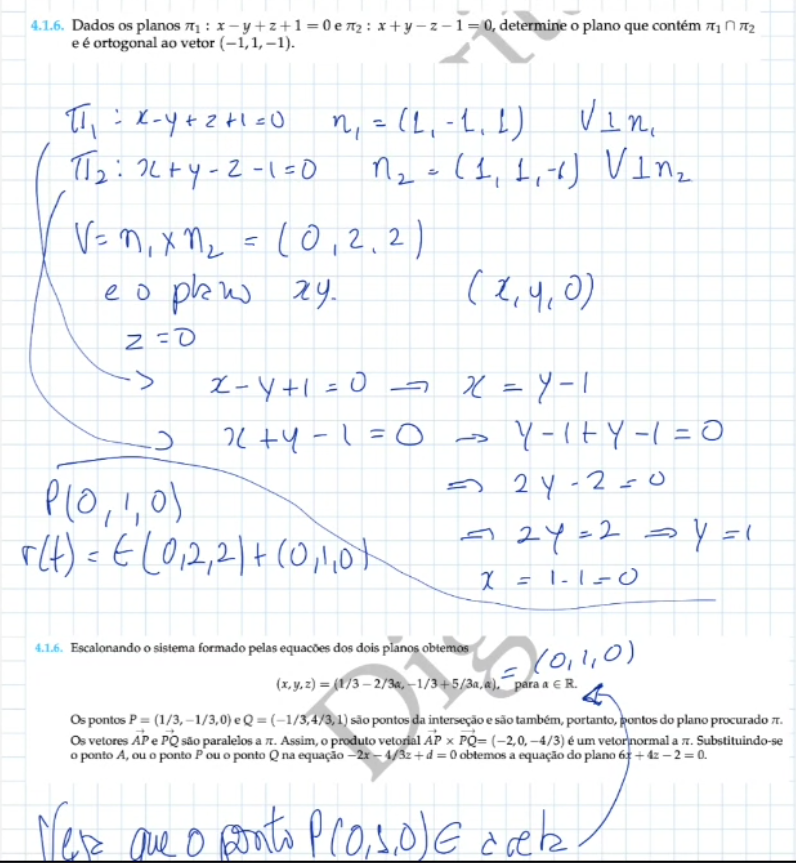 4.1.6. Dados os planos π₁ : x − y + z + 1 = 0 e π₂ : x + y − z − 1 = 0, determine o plano que contém π₁ ∩ π₂
e é ortogonal ao vetor (−1, 1, −1).
π₁ : x-y+z+1=0 n₁ = (1, -1, 1) V⊥n₁
π₂ : x+y-z-1=0 n₂ = (1, 1, -1) V⊥n₂
V = n₁ x n₂ = (0, 2, 2)
e o plano xy. (x, y, 0)
z = 0
x-y+1=0 ⇒ x = y-1
x+y-1=0 → y-1+y-1=0
⇒ 2y-2=0
P(0,1,0)
⇒ 2y=2 ⇒ y=1
r(t) = t(0,2,2)+(0,1,0)
x = 1-1=0
4.1.6. Escalonando o sistema formado pelas equações dos dois planos obtemos
= (0,1,0)
(x, y, z) = (1/3 − 2/3α, −1/3 + 5/3α, α), para α ∈ ℝ.
Os pontos P = (1/3, −1/3, 0) e Q = (−1/3, 4/3, 1) são pontos da interseção e são também, portanto, pontos do plano procurado π.
Os vetores AP e PQ são paralelos a π. Assim, o produto vetorial AP × PQ= (−2, 0, −4/3) é um vetor normal a π. Substituindo-se
o ponto A, ou o ponto P ou o ponto Q na equação −2x − 4/3z + d = 0 obtemos a equação do plano 6x + 4z − 2 = 0.
que o ponto P(0,1,0) ∈